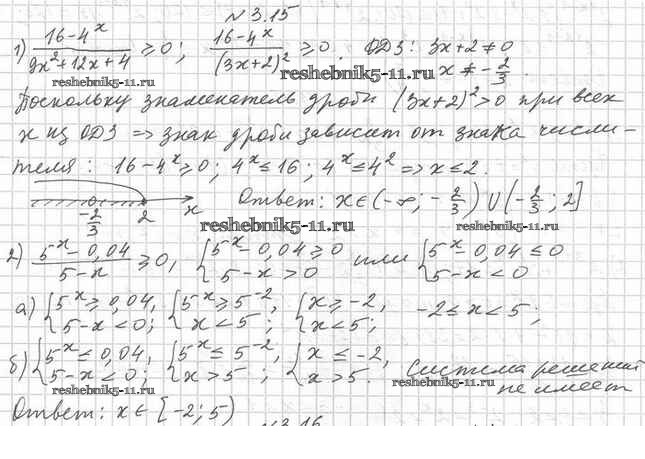 № 3.15
1) (16-4^x)/(9x²+12x+4) ≥ 0; (16-4^x)/(3x+2)² ≥ 0. ОДЗ: 3x+2 ≠ 0
x ≠ -2/3.
reshebnik5-11.ru reshebnik5-11.ru
Поскольку знаменатель дроби (3x+2)² > 0 при всех
x из ОДЗ => знак дроби зависит от знака числи-
теля: 16-4^x ≥ 0; 4^x ≤ 16; 4^x ≤ 4² => x ≤ 2.
-2/3 2 x Ответ: x ∈ (-∞; -2/3) ∪ (-2/3; 2]
reshebnik5-11.ru reshebnik5-11.ru
2) (5^x-0,04)/(5-x) ≥ 0, { 5^x-0,04 ≥ 0 или { 5^x-0,04 ≤ 0
5-x > 0 5-x < 0
reshebnik5-11.ru
а) { 5^x ≥ 0,04, { 5^x ≥ 5^-2, { x ≥ -2, -2 ≤ x < 5;
5-x < 0; x < 5; x < 5;
б) { 5^x ≤ 0,04, { 5^x ≤ 5^-2, { x ≤ -2, система решений
5-x < 0; x > 5; x > 5. не имеет
reshebnik5-11.ru reshebnik5-11.ru
Ответ: x ∈ [-2; 5)
№ 3.16